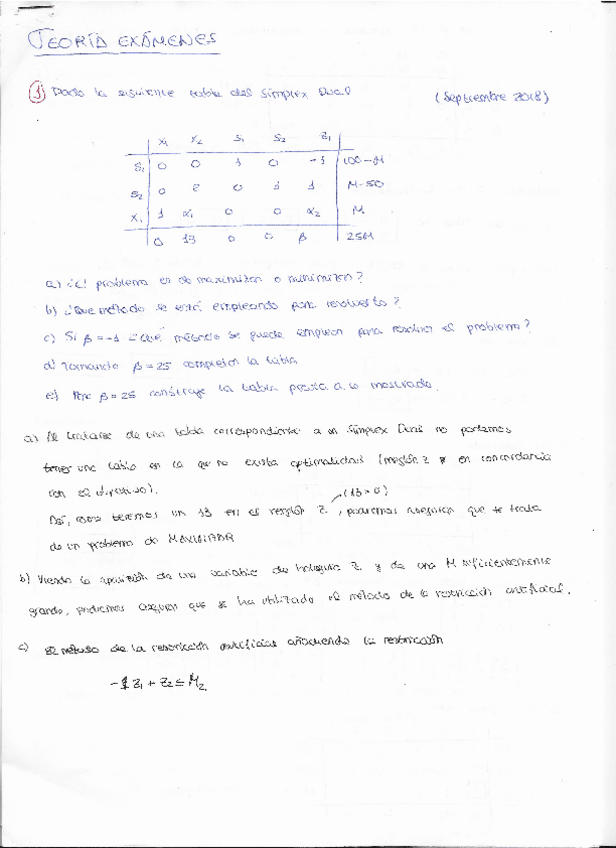 TEORÍA EXÁMENES
① Dada la siguiente tabla del Simplex Dual (Septiembre 2018)
X₁ X₂ S₁ S₂ Z₁
S₁ 0 0 1 0 -1 100-M
S₂ 0 2 0 1 1 M-50
X₁ 1 α₁ 0 0 α₂ M
0 13 0 0 β 25M
a) ¿El problema es de maximizar o minimizar?
b) ¿Que método se está empleando para resolverlo?
c) Si β = -1 ¿Qué método se puede emplear para resolver el problema?
d) Tomando β = 25 completar la tabla
e) Para β = 25 construye la tabla previa a la mostrada.
a) Al tratarse de una tabla correspondiente a un Simplex Dual no podemos
tener una tabla en la que no exista optimalidad (renglón Z en concordancia
con el objetivo).
(13>0)
Así, como tenemos un 13 en el renglón Z, podremos asegurar que se trata
de un problema de MAXIMIZAR
b) Viendo la aparición de una variable de holgura Z y de una M suficientemente
grande, podremos asegurar que se ha utilizado el método de la restricción artificial.
c) El método de la restricción artificial añadiendo la restricción
-1 Z₁ + Z₂ ≤ M₂